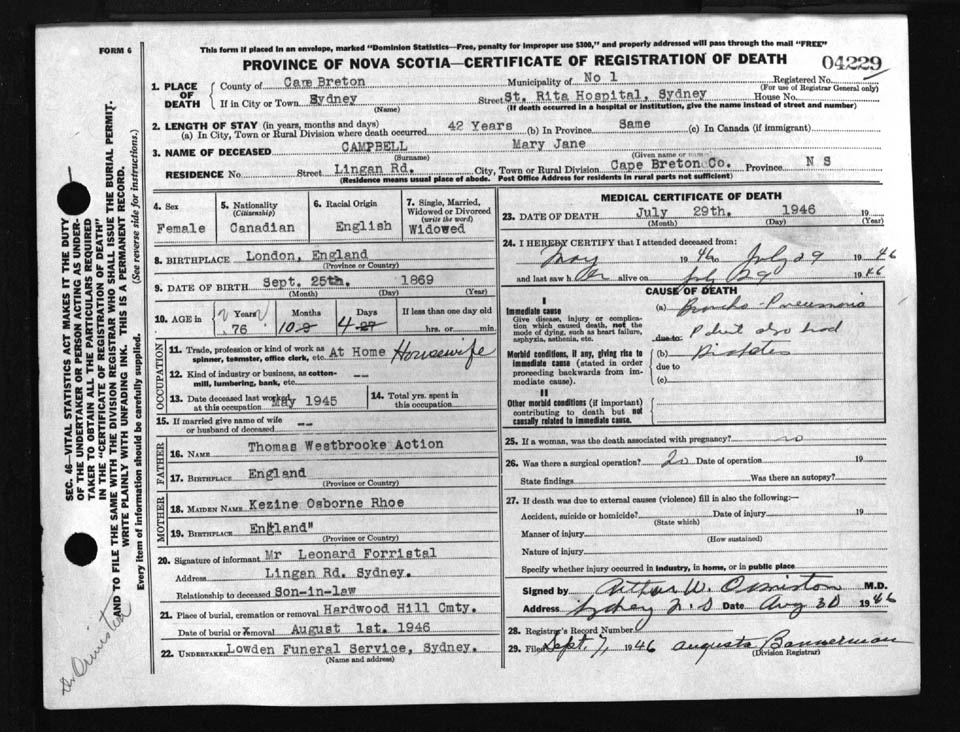 FORM 6
This form if placed in an envelope, marked "Dominion Statistics—Free, penalty for improper use $300," and properly addressed will pass through the mail "FREE"
PROVINCE OF NOVA SCOTIA—CERTIFICATE OF REGISTRATION OF DEATH
04229
SEC. 46—VITAL STATISTICS ACT MAKES IT THE DUTY
OF THE UNDERTAKER OR PERSON ACTING AS UNDER-
TAKER TO OBTAIN ALL THE PARTICULARS REQUIRED
IN THE "CERTIFICATE OF REGISTRATION OF DEATH"
AND TO FILE THE SAME WITH THE DIVISION REGISTRAR WHO SHALL ISSUE THE BURIAL PERMIT.
WRITE PLAINLY WITH UNFADING INK. THIS IS A PERMANENT RECORD.
Every item of information should be carefully supplied. (See reverse side for instructions.)
Dr Ormiston
1. PLACE OF DEATH
County of Cape Breton Municipality of No 1 Registered No.
(For use of Registrar General only)
If in City or Town Sydney Street St. Rita Hospital, Sydney House No.
(Name) (If death occurred in a hospital or institution, give the name instead of street and number)
2. LENGTH OF STAY (in years, months and days)
(a) In City, Town or Rural Division where death occurred 42 Years (b) In Province Same (c) In Canada (if immigrant)
3. NAME OF DECEASED CAMPBELL Mary Jane
(Surname) (Given name or names)
RESIDENCE No. Street Lingan Rd. City, Town or Rural Division Cape Breton Co. Province N S
(Residence means usual place of abode. Post Office Address for residents in rural parts not sufficient)
4. Sex
Female
5. Nationality
(Citizenship)
Canadian
6. Racial Origin
English
7. Single, Married,
Widowed or Divorced
(write the word)
Widowed
8. BIRTHPLACE London, England
(Province or Country)
9. DATE OF BIRTH Sept. 25th. 1869
(Month) (Day) (Year)
10. AGE in Years Months Days If less than one day old
76 10 4 hrs. or min.
OCCUPATION
11. Trade, profession or kind of work as
spinner, teamster, office clerk, etc. At Home Housewife
12. Kind of industry or business, as cotton-
mill, lumbering, bank, etc. --
13. Date deceased last worked
at this occupation May 1945
14. Total yrs. spent in
this occupation
15. If married give name of wife
or husband of deceased --
FATHER
16. NAME Thomas Westbrooke Action
17. BIRTHPLACE England
(Province or Country)
MOTHER
18. MAIDEN NAME Kezine Osborne Rhoe
19. BIRTHPLACE England"
(Province or Country)
20. Signature of informant Mr Leonard Forristal
Address Lingan Rd. Sydney.
Relationship to deceased Son-in-law
21. Place of burial, cremation or removal Hardwood Hill Cmty.
Date of burial or removal August 1st. 1946
22. UNDERTAKER Lowden Funeral Service, Sydney.
(Name and address)
MEDICAL CERTIFICATE OF DEATH
23. DATE OF DEATH July 29th. 1946 19
(Month) (Day) (Year)
24. I HEREBY CERTIFY that I attended deceased from:
May 1946 to July 29 1946
and last saw her alive on July 29 1946
CAUSE OF DEATH
I
Immediate cause
Give disease, injury or complica-
tion which caused death, not the
mode of dying, such as heart failure,
asphyxia, asthenia, etc.
(a) Broncho-Pneumonia
due to
Morbid conditions, if any, giving rise to
immediate cause (stated in order
proceeding backwards from im-
mediate cause).
(b) Diabetes
due to
(c)
II
Other morbid conditions (if important)
contributing to death but not
causally related to immediate cause.
25. If a woman, was the death associated with pregnancy? no
26. Was there a surgical operation? no Date of operation 19
State findings Was there an autopsy?
27. If death was due to external causes (violence) fill in also the following:—
Accident, suicide or homicide? Date of injury 19
(State which)
Manner of injury
(How sustained)
Nature of injury
Specify whether injury occurred in industry, in home, or in public place
Signed by Arthur W. Ormiston M.D.
Address Sydney N.S Date Aug 30 1946
28. Registrar's Record Number
29. Filed Sept. 7, 1946 Augusta Bannerman
(Division Registrar)